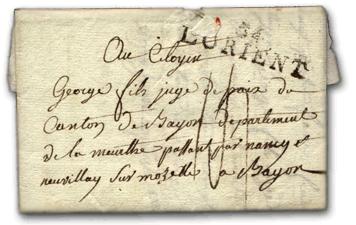 54
LORIENT
Au Citoyen
George fils juge de paix du
Canton de Bayon département
de la meurthe passant par nancy et
neuvillay sur mozelle a Bayon